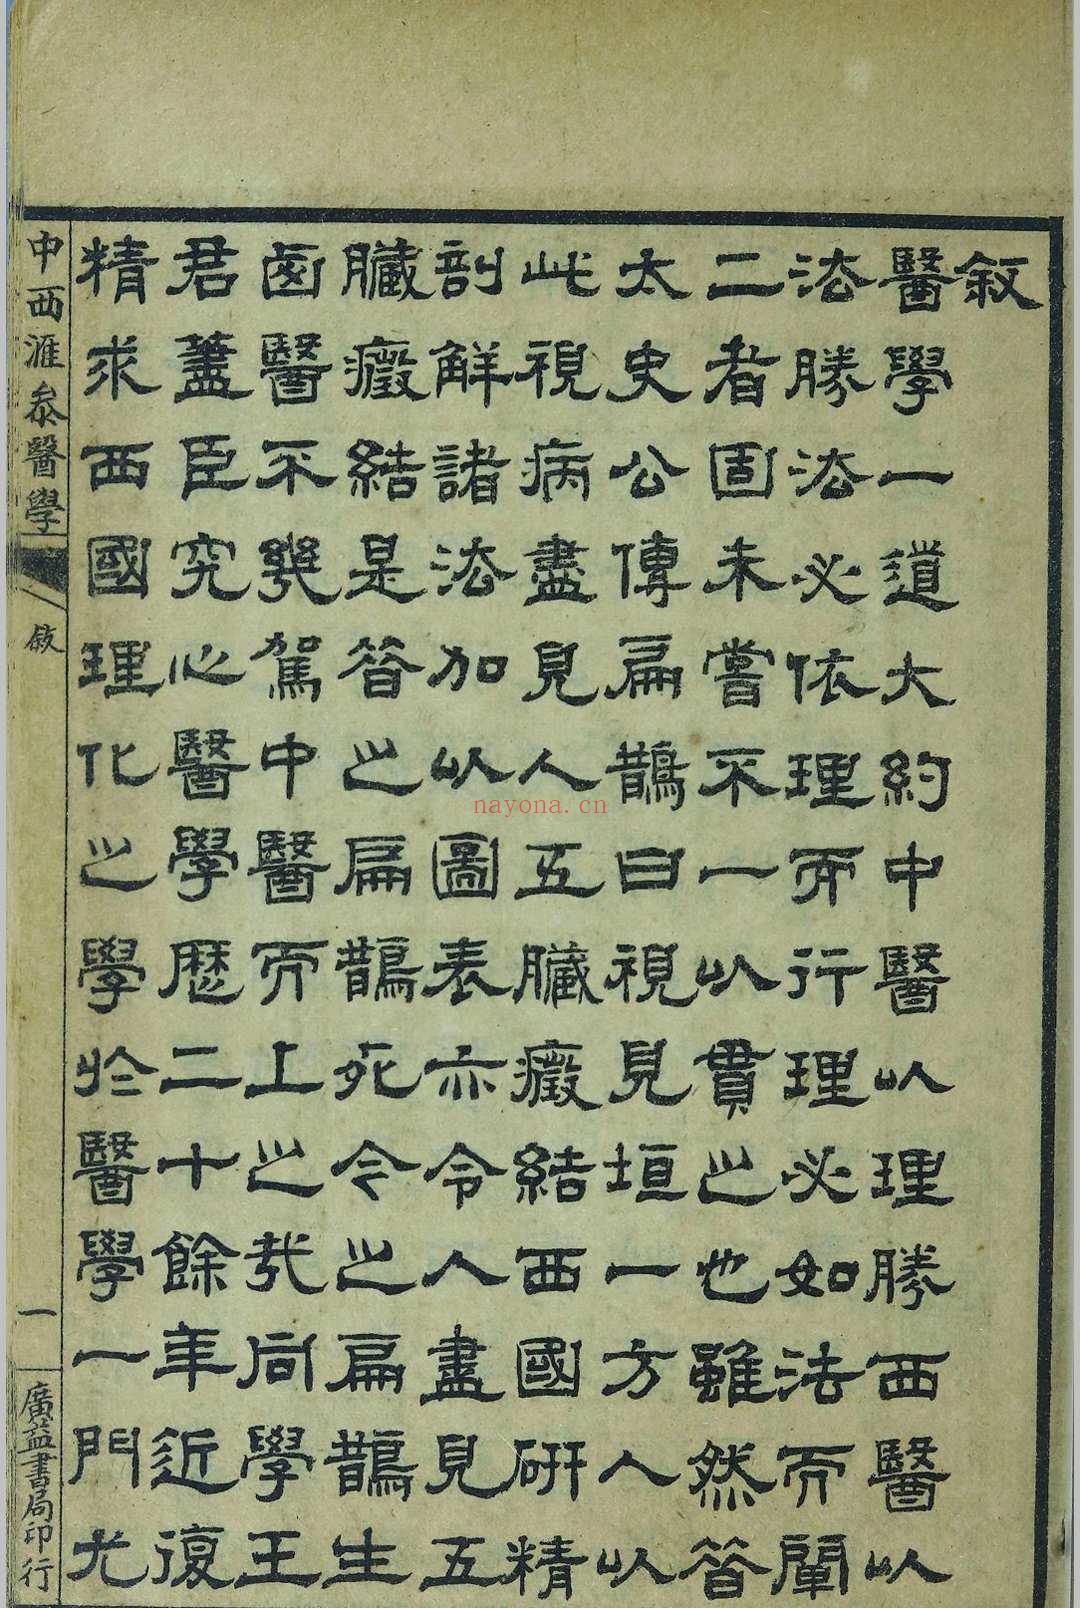 敘
醫學一道大約中醫以理勝西醫以
法勝法必依理而行理必如法而闡
二者固未嘗不一以貫之也雖然昔
太史公傳扁鵲曰視見垣一方人以
此視病盡見人五臟癥結西國研精
剖解諸法加以圖表亦令人盡見五
臟癥結是昔之扁鵲死今之扁鵲生
西醫不幾駕中醫而上之哉同學王
君藎臣究心醫學歷二十餘年近復
精求西國理化之學於醫學一門尤
中西滙叅醫學
敘
一
廣益書局印行
nayona.cn